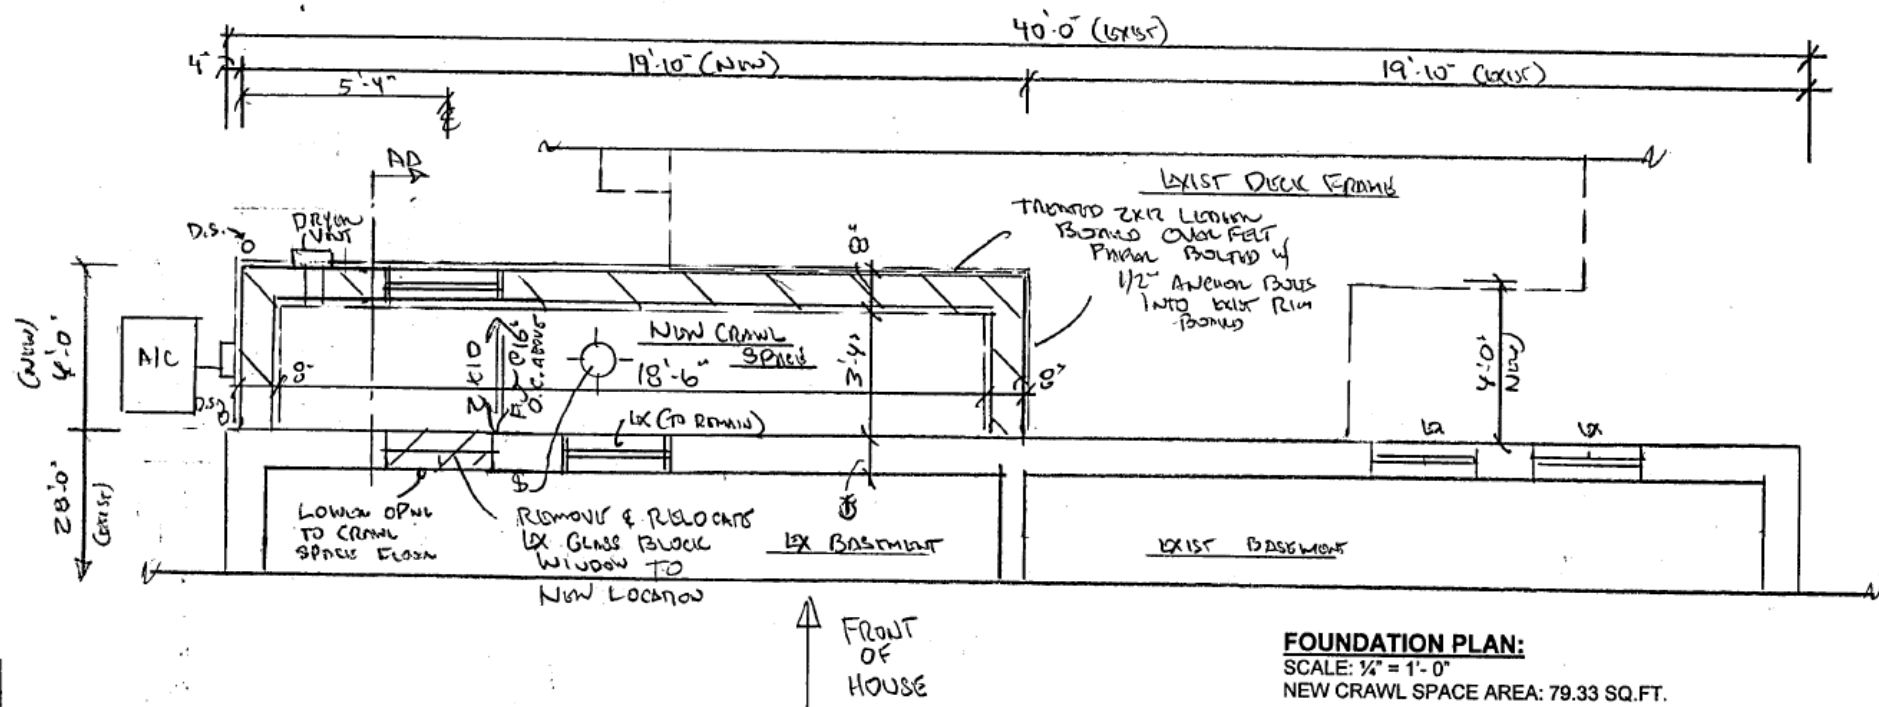 40'-0" (EXIST)
4" 19'-10" (NEW) 19'-10" (EXIST)
5'-4"
AD
EXIST DECK FRAME
D.S.
DRYER
VENT
8"
TREATED 2X12 LEDGER
BOARD OVER FELT
PAPER BOLTED W/
1/2" ANCHOR BOLTS
INTO EXIST RIM
BOARD
(NEW)
4'-0"
A/C
D.S.
8"
2X10
F.J. @ 16"
O.C. ABOVE
NEW CRAWL
SPACE
18'-6"
3'-4"
8"
4'-0"
(NEW)
EX (TO REMAIN)
EX
EX
28'-0"
(EXIST)
LOWER OPNG
TO CRAWL
SPACE FLOOR
$
REMOVE & RELOCATE
EX GLASS BLOCK
WINDOW TO
NEW LOCATION
EX BASEMENT
EXIST BASEMENT
FRONT
OF
HOUSE
FOUNDATION PLAN:
SCALE: ¼" = 1'- 0"
NEW CRAWL SPACE AREA: 79.33 SQ.FT.